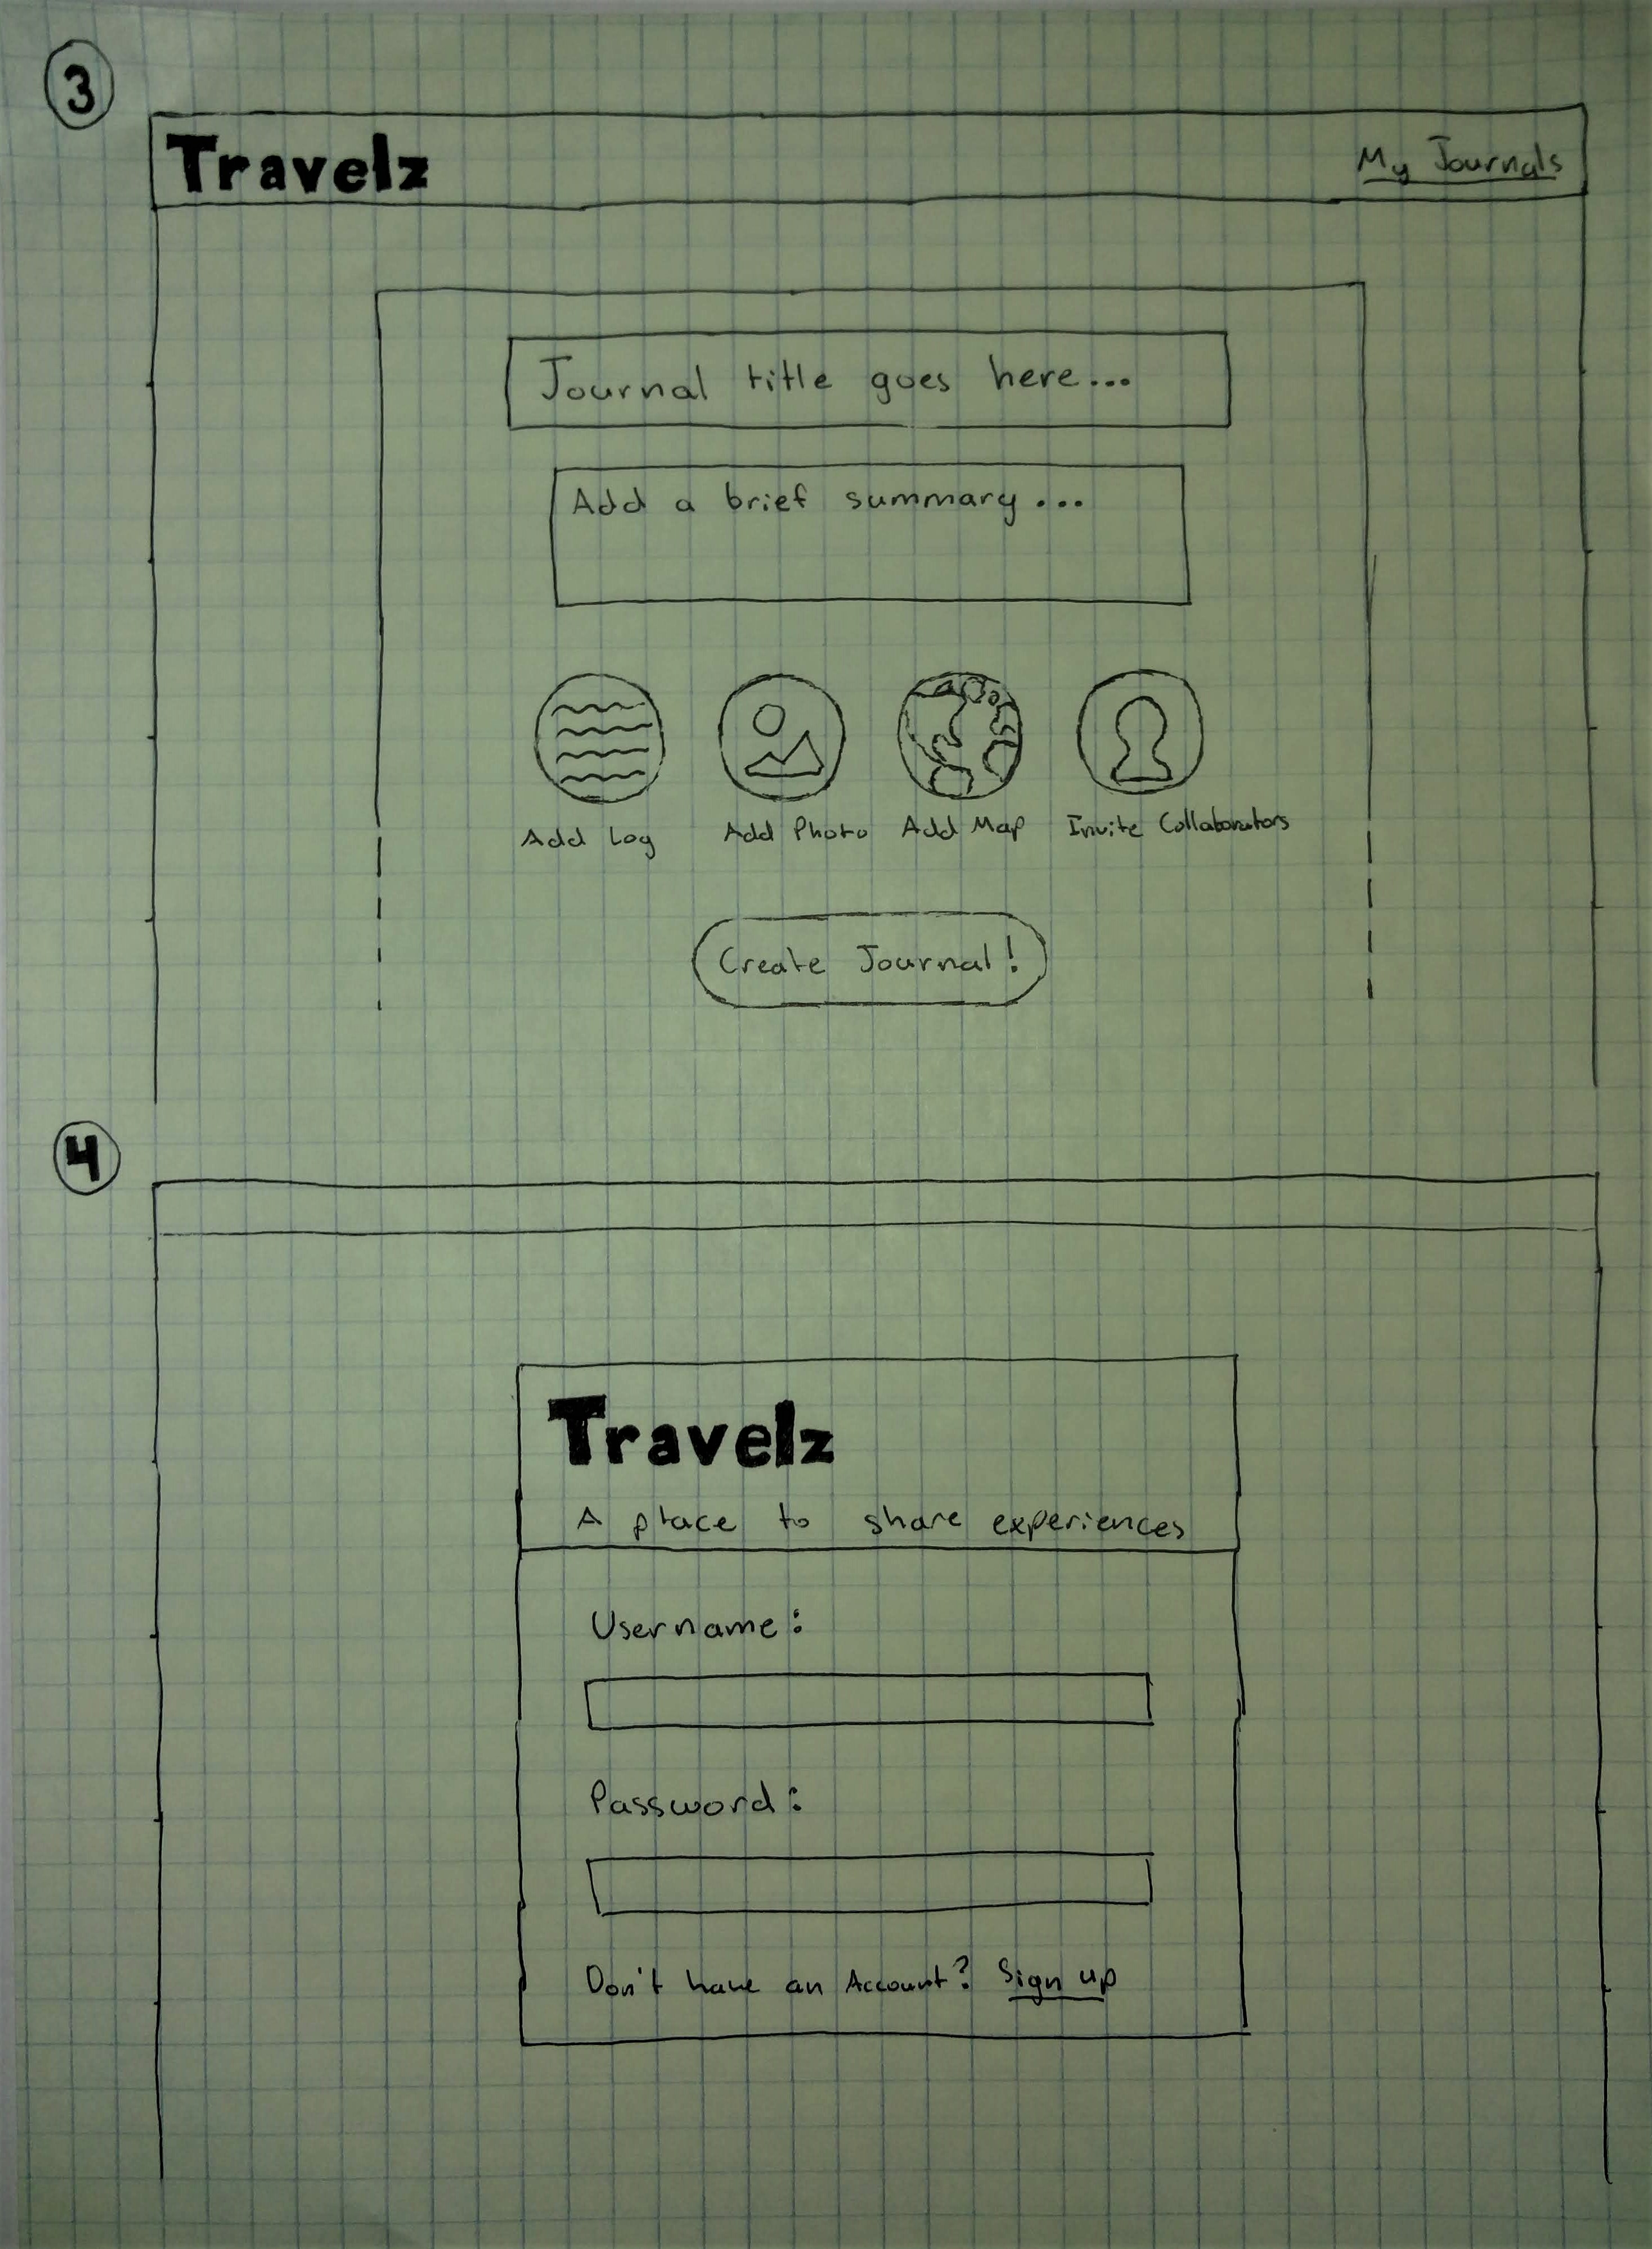 3
Travelz
My Journals
Journal title goes here...
Add a brief summary...
Add Log
Add Photo
Add Map
Invite Collaborators
Create Journal!
4
Travelz
A place to share experiences
Username:
Password:
Don't have an Account? Sign up